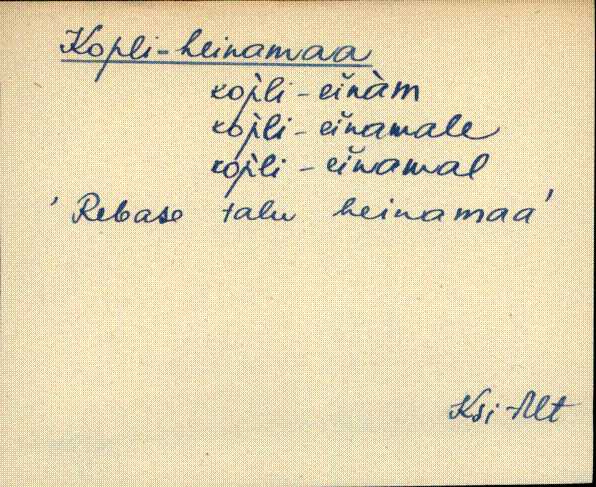 Kopli-heinamaa
kop̀li - eiǹàm
kop̀li - eiǹamale
kop̀li - eiǹamal
' Rebase talu heinamaa'